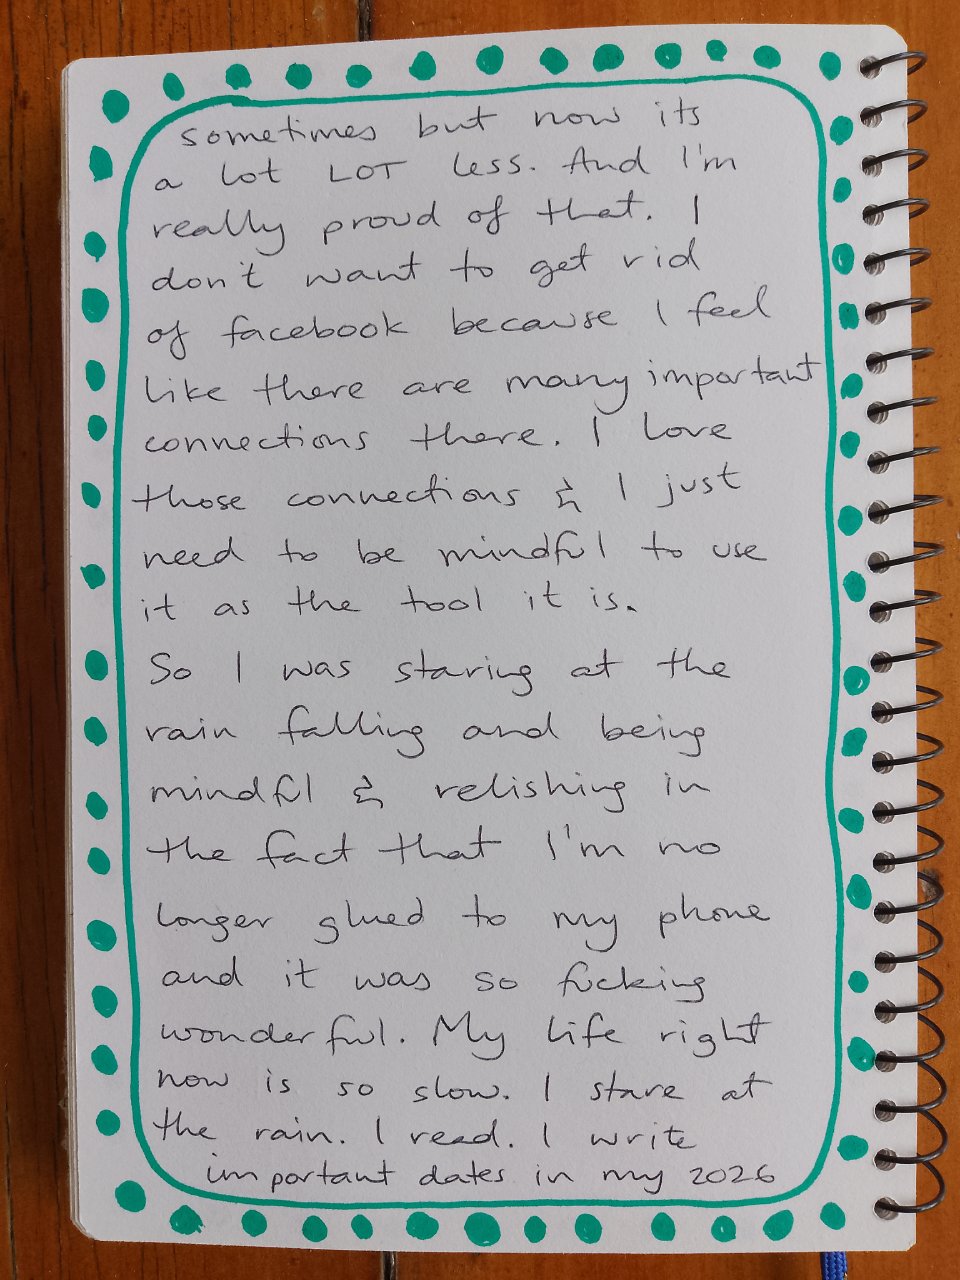 sometimes but now its
a lot LOT less. And I'm
really proud of that. I
don't want to get rid
of facebook because I feel
like there are many important
connections there. I love
those connections & I just
need to be mindful to use
it as the tool it is.
So I was staring at the
rain falling and being
mindful & relishing in
the fact that I'm no
longer glued to my phone
and it was so fucking
wonderful. My life right
now is so slow. I stare at
the rain. I read. I write
important dates in my 2026